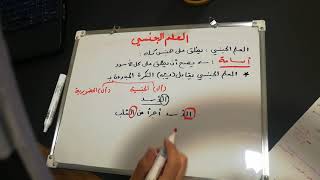 العلم الجنسي
العلم الجنسي : يطلق على الجنس كله
أسامة : ← يصح أن يطلق على كل الأسود
* العلم الجنسي يقابل النكرة المبدوءة بـ
(أل) الجنسية (أل) الحضورية
الأسد
الأسد أجرأ من الثعلب